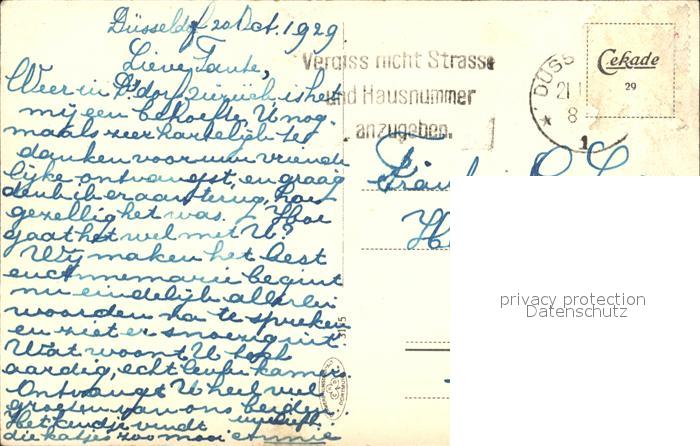 Düsseldf 20 Oct. 1929.
Lieve Tante,
Weer in D'dorf zurück is het
mij een behoefte U nog-
maals zeer hartelijk te
danken voor uw vriende
lijke ontvangst, en graag
denk ik eraan terug, hoe
gezellig het was. Hoe
gaat het wel met U?
Wij maken het best
en Annemarie begint
nu eindelijk allerlei
woorden na te spreken
en ziet er snoezig uit.
Wat woont U heel
aardig, echt leuke kamers.
Ontvangt U heel veel
groeten van ons beiden
Het kindje vindt
die katjes zoo mooi Annie
Vergiss nicht Strasse
und Hausnummer
anzugeben.
DÜSS
21
8
1
Cekade
29
3115
privacy protection
Datenschutz